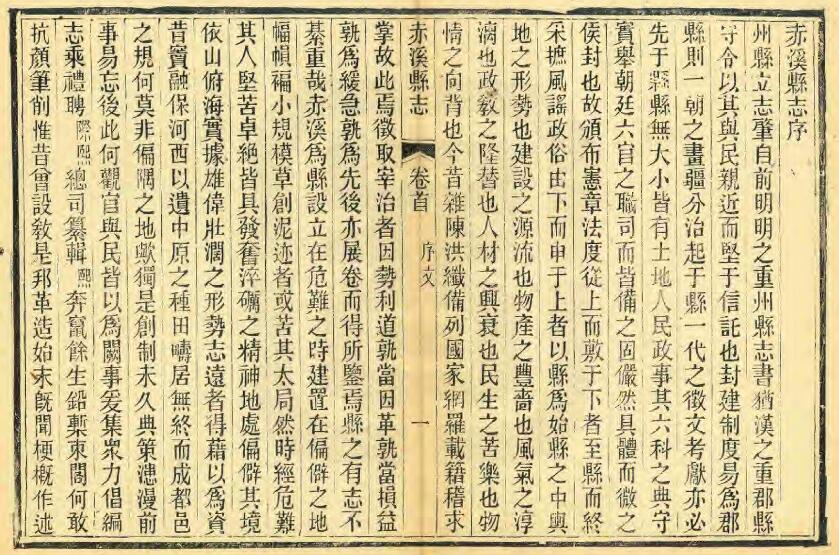 赤溪縣志序
州縣立志肇自前明明之重州縣志書猶漢之重郡縣
守令以其與民親近而堅于信託也封建制度易爲郡
縣則一朝之畫疆分治起于縣一代之徵文考獻亦必
先于縣縣無大小皆有土地人民政事其六科之典守
實舉朝廷六官之職司而皆備之固儼然具體而微之
侯封也故頒布憲章法度從上而敷于下者至縣而終
采摭風謠政俗由下而申于上者以縣爲始縣之中輿
地之形勢也建設之源流也物產之豐嗇也風氣之淳
漓也政敎之隆替也人材之興衰也民生之苦樂也物
情之向背也今昔雜陳洪纖備列國家網羅載籍稽求
赤溪縣志 卷首 序文 一
掌故此焉徵取宰治者因勢利道孰當因革孰當損益
孰爲緩急孰爲先後亦展卷而得所鑒焉縣之有志不
綦重哉赤溪爲縣設立在危難之時建置在偏僻之地
幅幀褊小規模草創泥迹者或苦其太局然時經危難
其人堅苦卓絕皆具發奮淬礪之精神地處偏僻其境
依山俯海實據雄偉壯濶之形勢志遠者得藉以爲資
昔竇融保河西以遺中原之種田疇居無終而成都邑
之規何莫非偏隅之地歟獨是創制未久典策漶漫前
事易忘後此何觀官與民皆以爲闕事爰集衆力倡編
志乘禮聘際熙總司纂輯熙奔竄餘生鉛槧東閣何敢
抗顏筆削惟昔曾設敎是邦革造始末旣聞梗槪作述